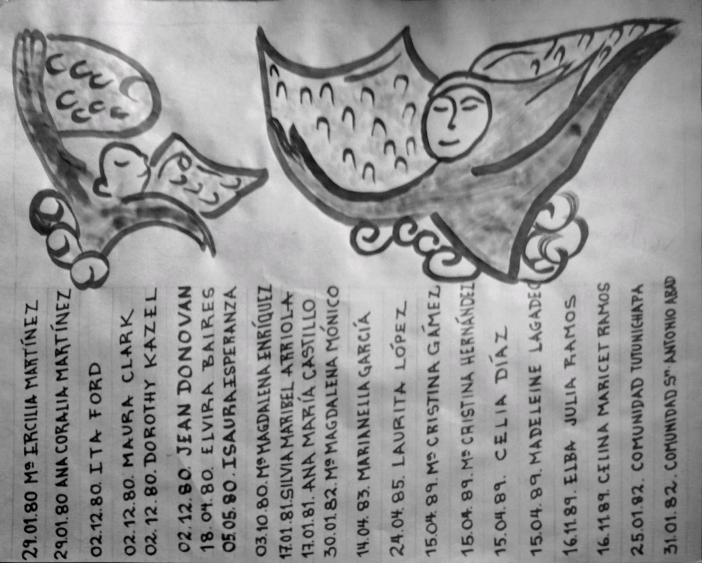 29.01.80 Mª ERCILIA MARTÍNEZ
29.01.80 ANA CORALIA MARTÍNEZ
02.12.80. ITA FORD
02.12.80. MAURA CLARK
02.12.80. DOROTHY KAZEL
02.12.80. JEAN DONOVAN
18.04.80. ELVIRA BAIRES
05.05.80. ISAURA ESPERANZA
03.10.80. Mª MAGDALENA ENRÍQUEZ
17.01.81. SILVIA MARIBEL ARRIOLA
17.01.81. ANA MARÍA CASTILLO
30.01.82. Mª MAGDALENA MÓNICO
14.04.83. MARIANELLA GARCÍA
24.04.85. LAURITA LÓPEZ
15.04.89. Mª CRISTINA GÁMEZ
15.04.89. Mª CRISTINA HERNÁNDEZ
15.04.89. CELIA DÍAZ
15.04.89. MADELEINE LAGADEC
16.11.89. ELBA JULIA RAMOS
16.11.89. CELINA MARICET RAMOS
25.01.82. COMUNIDAD TUTUNICHAPA
31.01.82. COMUNIDAD Sⁿ ANTONIO ABAD